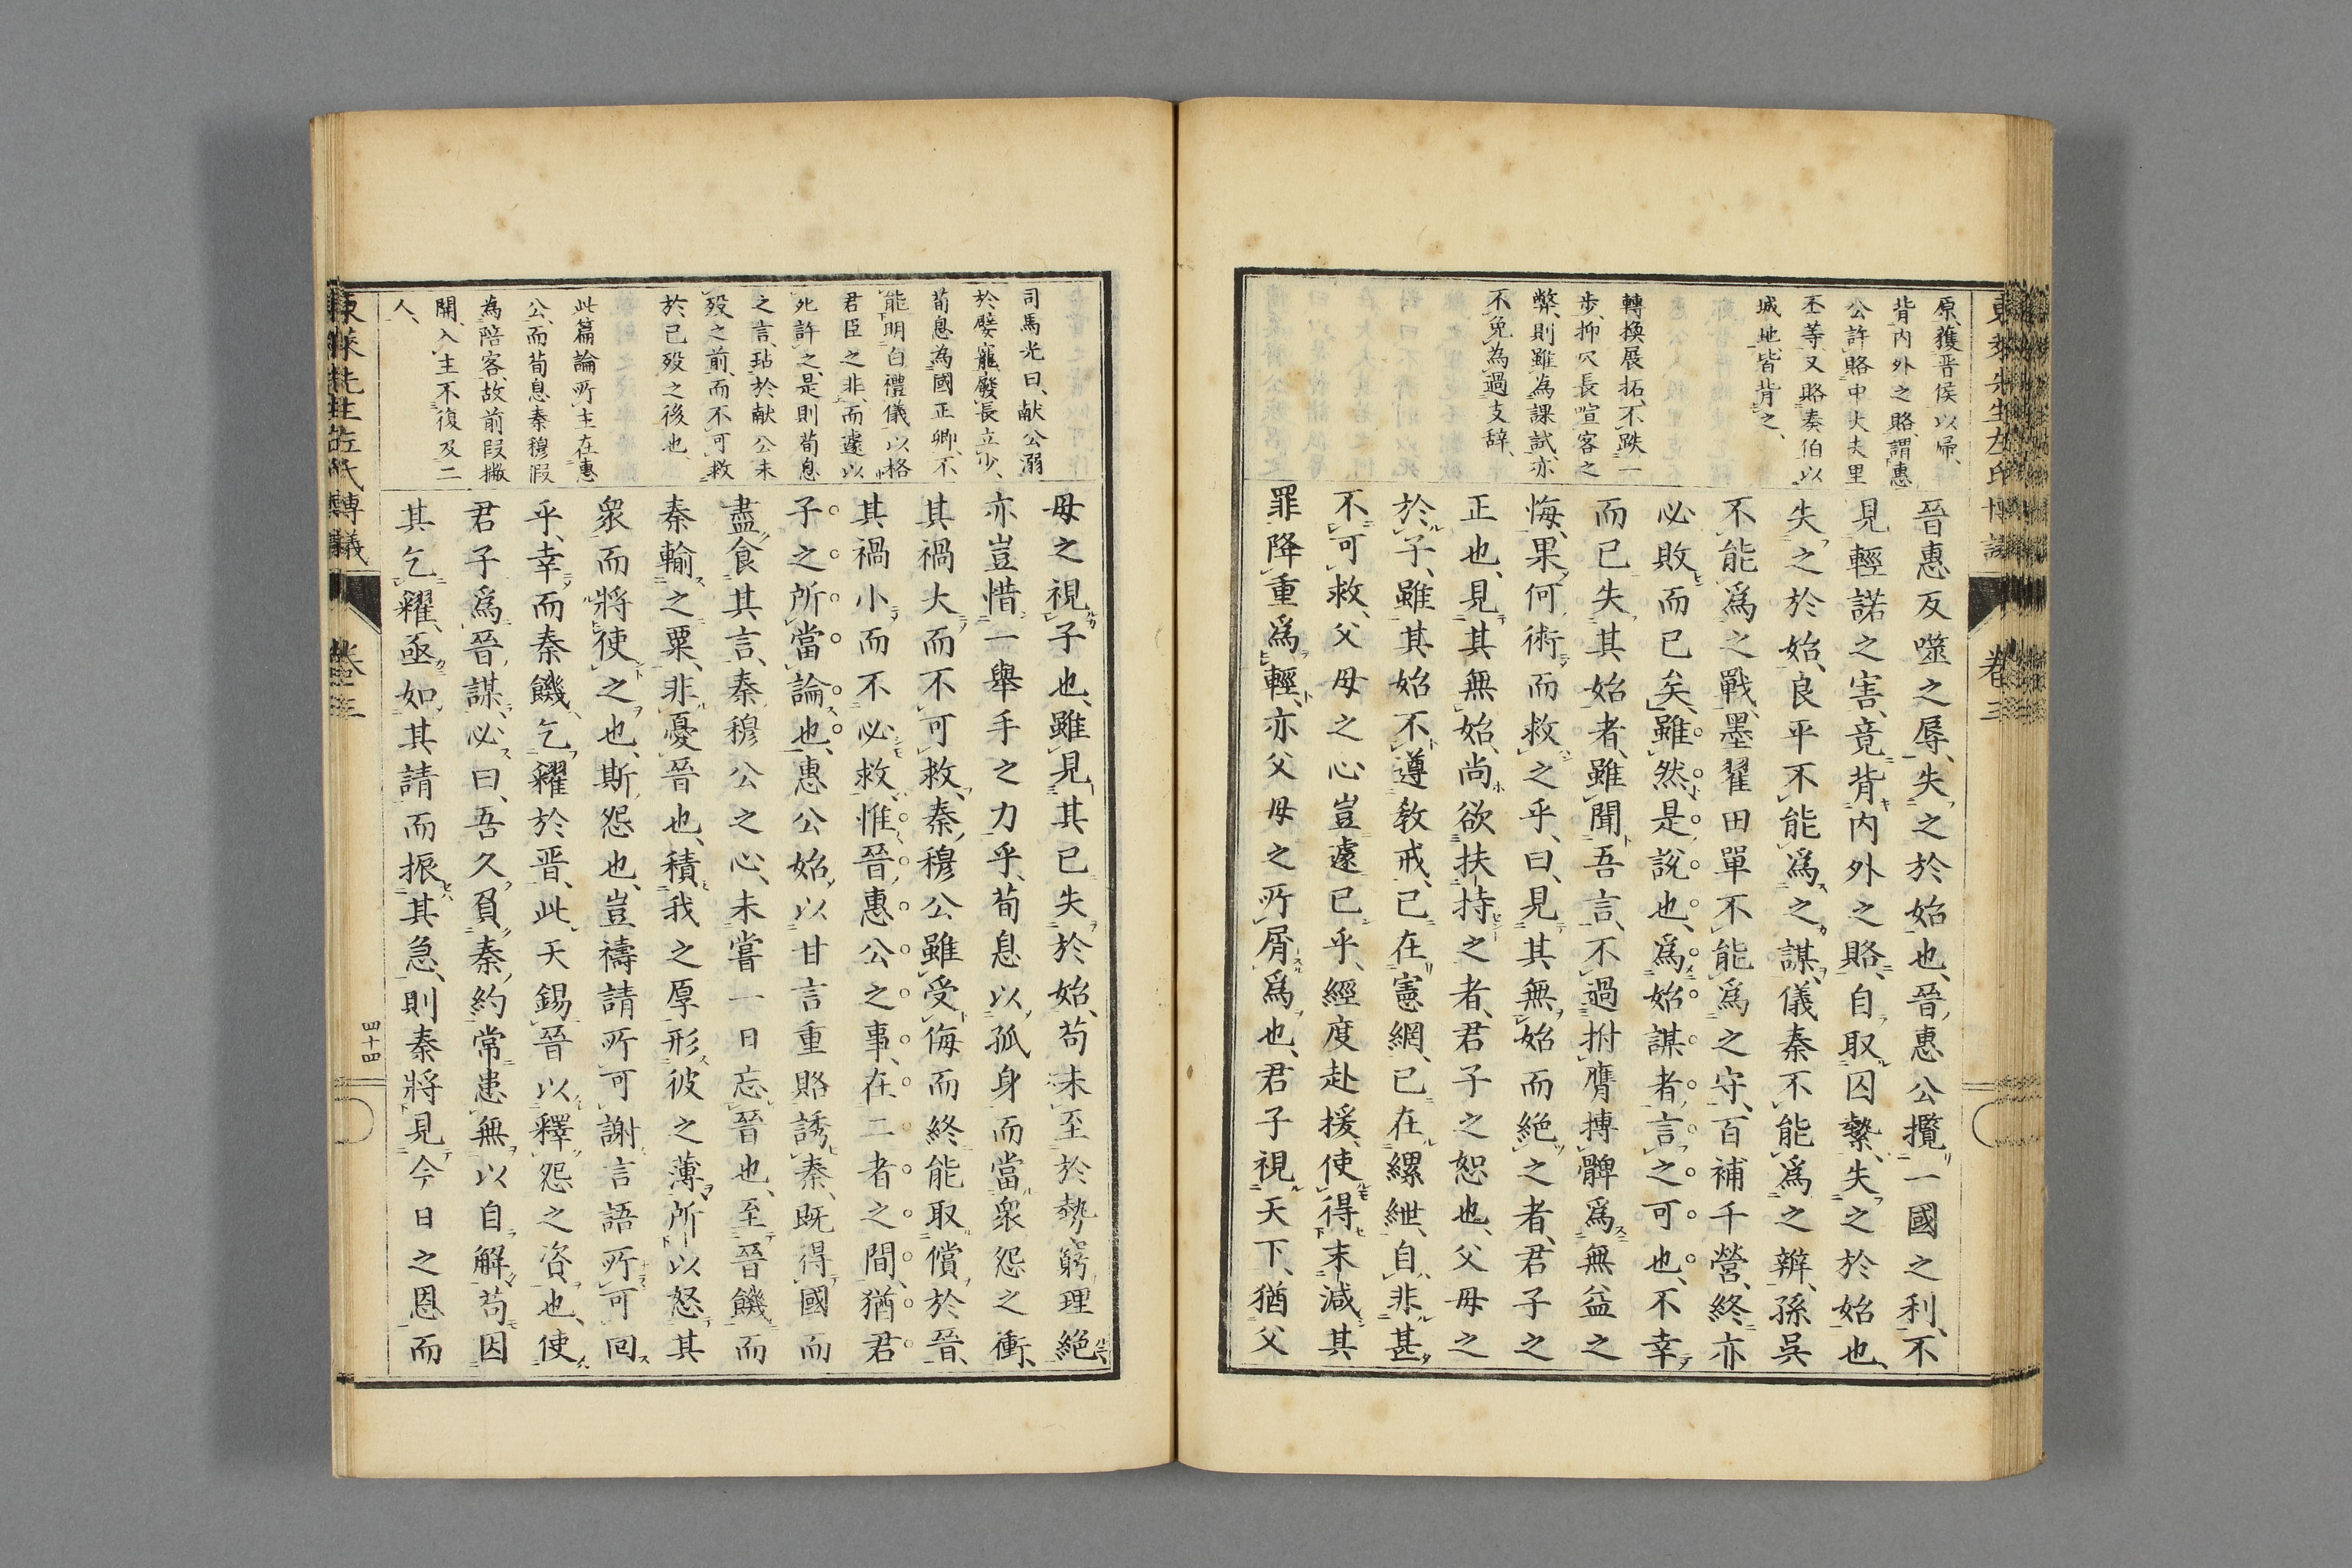 東萊先生左氏博議
卷三
原、獲晋侯以歸、
背内外之賂、謂惠
公許賂中大夫里
丕等、又賂秦伯以
城地、皆背之、
轉換展拓、不跌一
歩、抑穴長喧客之
弊、則雖為課試、亦
不免為過支辞、
晉惠反噬之辱、失之於始也、晉惠公攬一國之利、不
見輕諾之害、竟背内外之賂、自取囚縶、失之於始也、
失之於始、良平不能爲之謀、儀秦不能爲之辨、孫吳
不能爲之戰、墨翟田單不能爲之守、百補千營、終亦
必敗而已矣、雖然是說也、爲始謀者、言之可也、不幸
而已失其始者、雖聞吾言、不過拊膺搏髀爲無益之
悔、果何術而救之乎、曰、見其無始而絶之者、君子之
正也、見其無始、尚欲扶持之者、君子之恕也、父母之
於子、雖其始不遵敎戒、已在憲網、已在縲紲、自非甚
不可救、父母之心豈遽已乎、經度赴援、使得末減其
罪、降重爲輕、亦父母之所屑爲也、君子視天下、猶父
司馬光曰、献公溺
於嬖寵、廢長立少、
荀息為國正卿、不
能明白禮儀、以格
君臣之非、而遽以
死許之、是則荀息
之言、玷於献公未
歿之前、而不可救
於已歿之後也、
此篇論所主在惠
公、而荀息秦穆假
為陪客、故前段撇
開、入主不復及二
人、
母之視子也、雖見其已失於始、苟未至於勢窮理絶、
亦豈惜一舉手之力乎、荀息以孤身而當衆怨之衝、
其禍大而不可救、秦穆公雖受侮而終能取償於晉、
其禍小而不必救、惟晉惠公之事、在二者之間、猶君
子之所當論也、惠公始以甘言重賂誘秦、既得國而
盡食其言、秦穆公之心、未嘗一日忘晉也、至晉饑而
秦輸之粟、非憂晉也、積我之厚、形彼之薄、所以怒其
衆而將使之也、斯怨也、豈禱請所可謝、言語所可回
乎、幸而秦饑、乞糴於晋、此天錫晉以釋怨之資也、使
君子爲晉謀、必曰、吾久負秦約、常患無以自解、苟因
其乞糴、亟如其請而振其急、則秦將見今日之恩而
東萊先生左氏博議
卷三
四十四